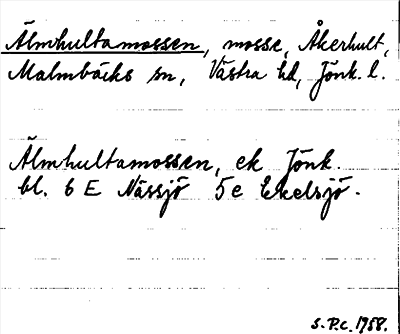 Älmhultamossen, mosse, Åkerhult,
Malmbäcks sn, Västra hd, Jönk. l.
Älmhultamossen, ek Jönk.
bl. 6 E Nässjö 5 e Ekelsjö.
S.P.C. 1958.